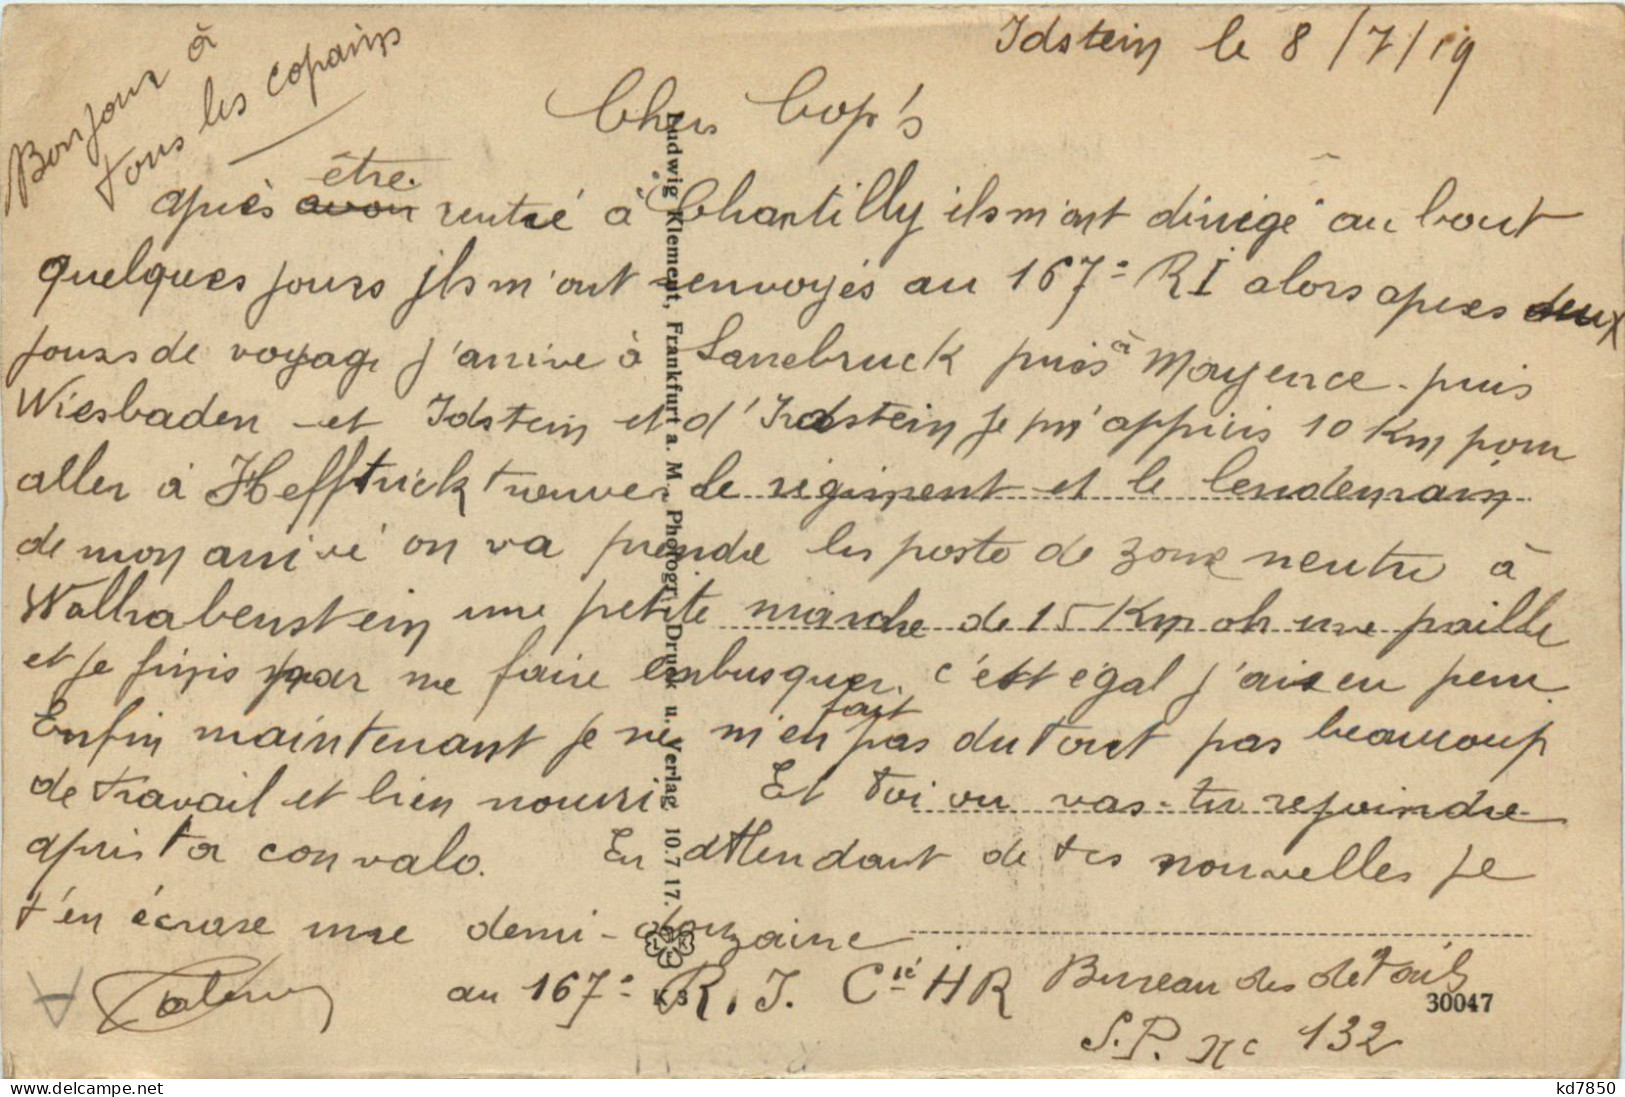 Idstein le 8/7/19
Bonjour à
tous les copains
Chers Cop's
être
après avoir rentré à Chantilly ils m'ont dirigé au bout
quelques jours ils m'ont envoyés au 167e RI alors apres deux
jours de voyage j'arrive à Sarrebruck puis à Mayence - puis
Wiesbaden et Idstein et d'Idstein je m'appuis 10 Km pour
aller à Hefftrick trouver le régiment et le lendemain
de mon arrivé on va prendre les poste de zone neutre à
Walhrabenstein une petite marche de 15 Km oh une paille
et je finis par me faire embusquer. c'est égal j'ai eu peur
Enfin maintenant je ne m'en fait pas du tout pas beaucoup
de travail et bien nourri Et toi ou vas-tu rejoindre
apris ta convalo. En attendant de tes nouvelles je
t'en écrase une demi-douzaine
au 167e R.I. Cie HR Bureau des détails
S.P. No 132
Ludwig Klement, Frankfurt a. M. Photogr. Druck u. Verlag. 10. 7 17.
L K F
K 3
30047
kd7850